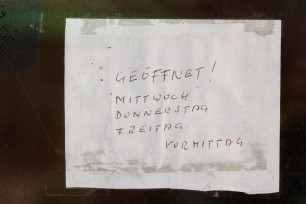 GEÖFFNET!
MITTWOCH
DONNERSTAG
FREITAG
VORMITTAG